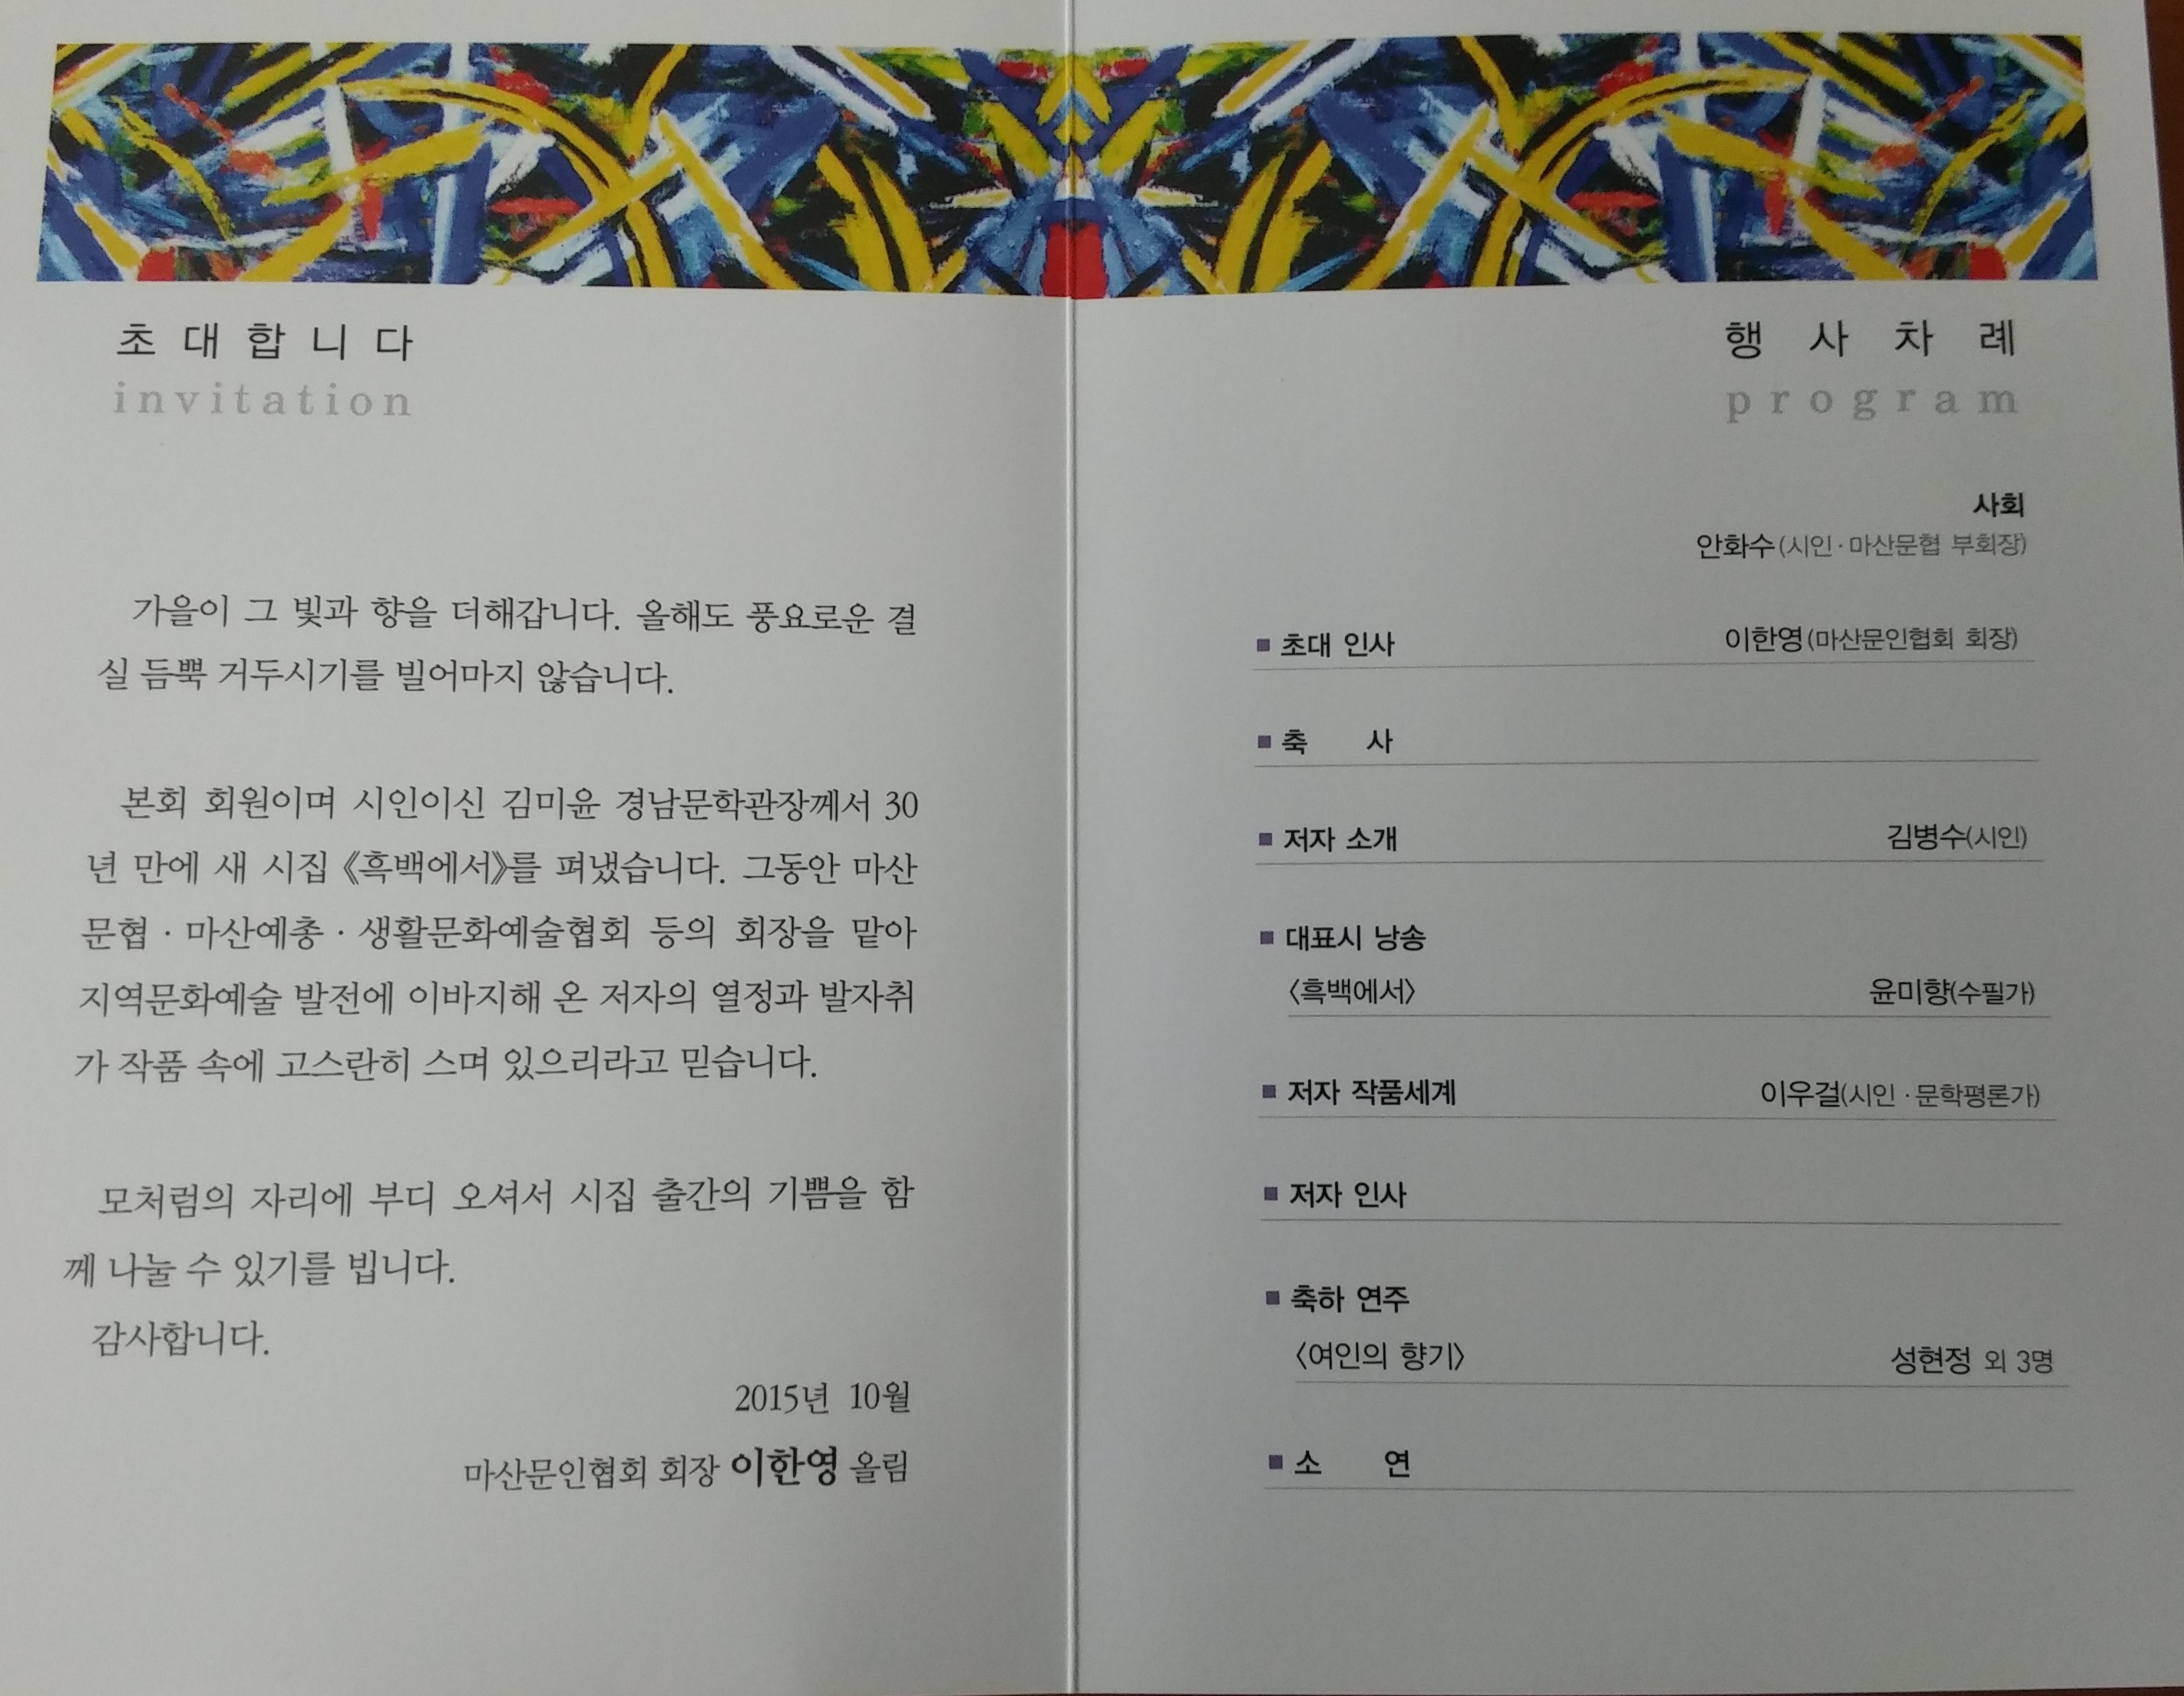 초대합니다
invitation
가을이 그 빛과 향을 더해갑니다. 올해도 풍요로운 결
실 듬뿍 거두시기를 빌어마지 않습니다.
본회 회원이며 시인이신 김미윤 경남문학관장께서 30
년 만에 새 시집 《흑백에서》를 펴냈습니다. 그동안 마산
문협 · 마산예총 · 생활문화예술협회 등의 회장을 맡아
지역문화예술 발전에 이바지해 온 저자의 열정과 발자취
가 작품 속에 고스란히 스며 있으리라고 믿습니다.
모처럼의 자리에 부디 오셔서 시집 출간의 기쁨을 함
께 나눌 수 있기를 빕니다.
감사합니다.
2015년 10월
마산문인협회 회장 이한영 올림
행 사 차 례
program
사회
안화수(시인 · 마산문협 부회장)
■ 초대 인사 이한영(마산문인협회 회장)
■ 축 사
■ 저자 소개 김병수(시인)
■ 대표시 낭송
〈흑백에서〉 윤미향(수필가)
■ 저자 작품세계 이우걸(시인 · 문학평론가)
■ 저자 인사
■ 축하 연주
〈여인의 향기〉 성현정 외 3명
■ 소 연